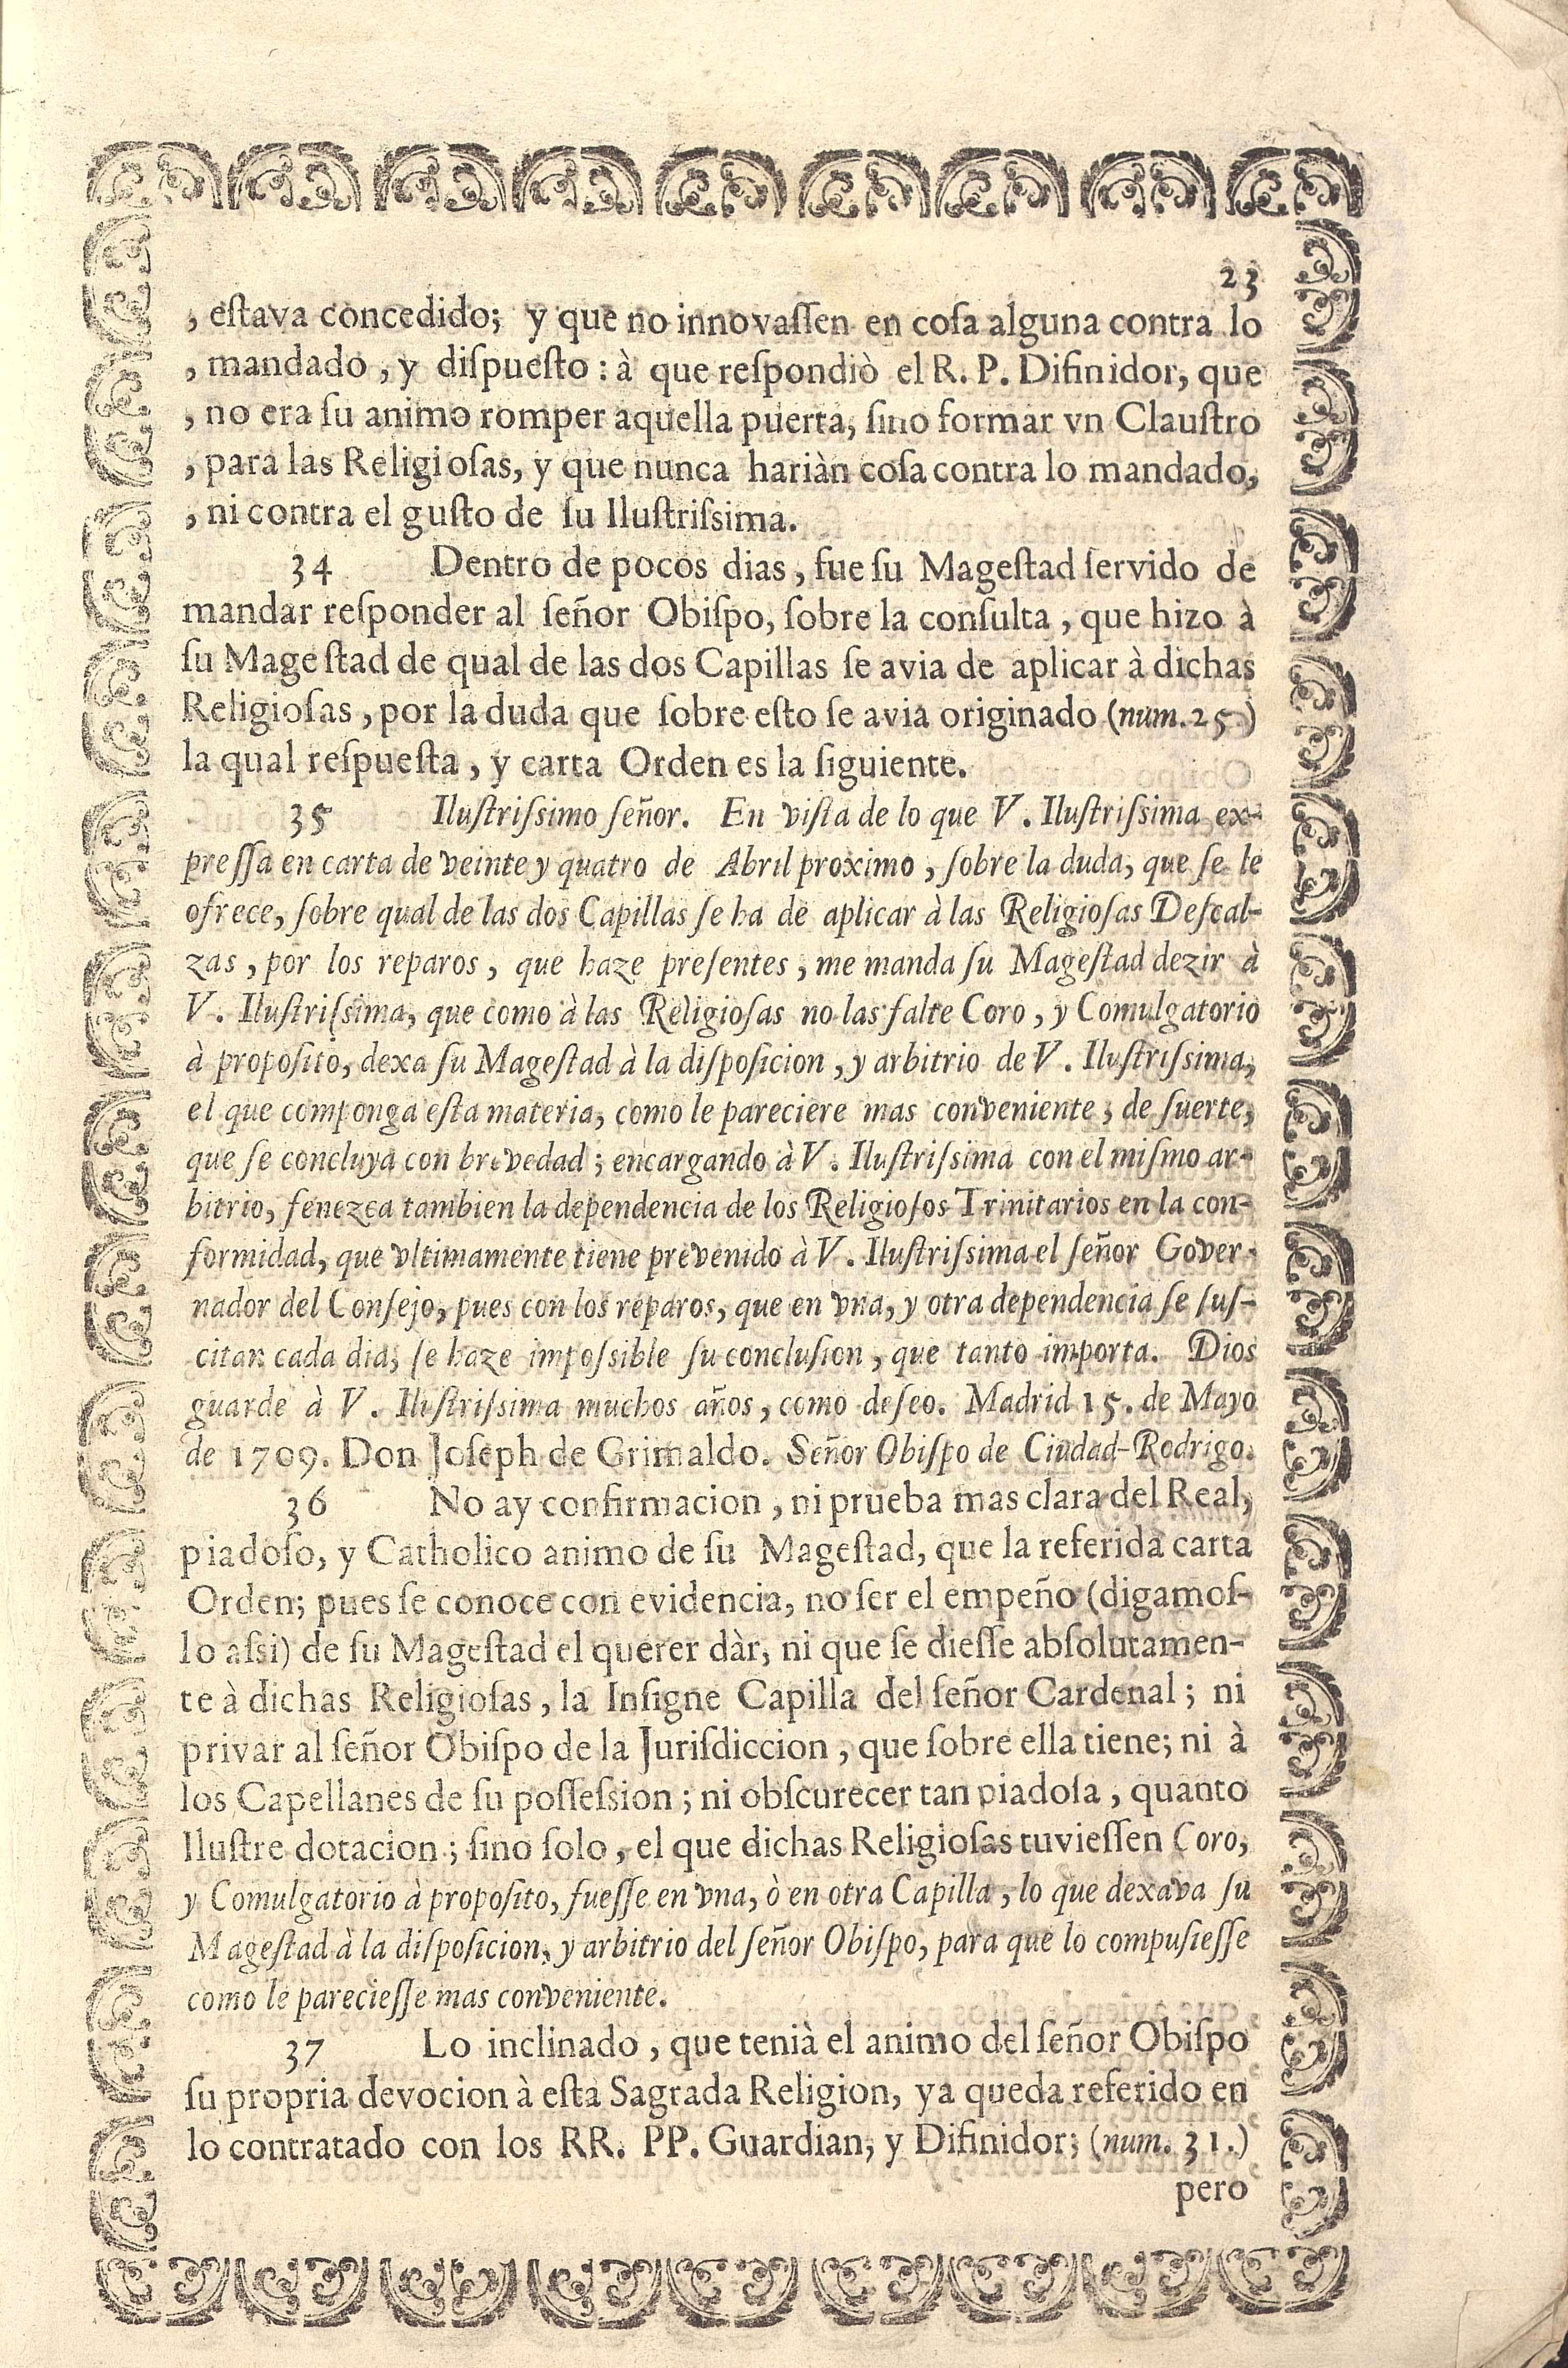 23
, eſtava concedido; y que no innovaſſen en coſa alguna contra lo
, mandado, y diſpueſto: à que reſpondiò el R. P. Difinidor, que
, no era ſu animo romper aquella puerta, ſino formar vn Clauſtro
, para las Religioſas, y que nunca hariàn coſa contra lo mandado,
, ni contra el guſto de ſu Iluſtriſsima.
34 Dentro de pocos dias, fue ſu Mageſtad ſervido de
mandar reſponder al ſeñor Obiſpo, ſobre la conſulta, que hizo à
ſu Mageſtad de qual de las dos Capillas ſe avia de aplicar à dichas
Religioſas, por la duda que ſobre eſto ſe avia originado (num. 25.)
la qual reſpueſta, y carta Orden es la ſiguiente.
35 Iluſtriſsimo ſeñor. En viſta de lo que V. Iluſtriſsima ex-
preſſa en carta de veinte y quatro de Abril proximo, ſobre la duda, que ſe le
ofrece, ſobre qual de las dos Capillas ſe ha de aplicar à las Religioſas Deſcal-
zas, por los reparos, que haze preſentes, me manda ſu Mageſtad dezir à
V. Iluſtriſsima, que como à las Religioſas no las falte Coro, y Comulgatorio
à propoſito, dexa ſu Mageſtad à la diſpoſicion, y arbitrio de V. Iluſtriſsima,
el que componga eſta materia, como le pareciere mas conveniente, de ſuerte,
que ſe concluya con brevedad; encargando à V. Iluſtriſsima con el miſmo ar-
bitrio, fenezca tambien la dependencia de los Religioſos Trinitarios en la con-
formidad, que vltimamente tiene prevenido à V. Iluſtriſsima el ſeñor Gover-
nador del Conſejo, pues con los reparos, que en vna, y otra dependencia ſe ſuſ-
citan cada dia, ſe haze impoſsible ſu concluſion, que tanto importa. Dios
guarde à V. Iluſtriſsima muchos años, como deſeo. Madrid 15. de Mayo
de 1709. Don Joſeph de Grimaldo. Señor Obiſpo de Ciudad-Rodrigo.
36 No ay confirmacion, ni prueba mas clara del Real,
piadoſo, y Catholico animo de ſu Mageſtad, que la referida carta
Orden; pues ſe conoce con evidencia, no ſer el empeño (digamoſ-
lo aſsi) de ſu Mageſtad el querer dàr, ni que ſe dieſſe abſolutamen-
te à dichas Religioſas, la Inſigne Capilla del ſeñor Cardenal; ni
privar al ſeñor Obiſpo de la Juriſdiccion, que ſobre ella tiene; ni à
los Capellanes de ſu poſſeſsion; ni obſcurecer tan piadoſa, quanto
Iluſtre dotacion; ſino ſolo, el que dichas Religioſas tuvieſſen Coro,
y Comulgatorio à propoſito, fueſſe en vna, ò en otra Capilla, lo que dexava ſu
Mageſtad à la diſpoſicion, y arbitrio del ſeñor Obiſpo, para que lo compuſieſſe
como le parecieſſe mas conveniente.
37 Lo inclinado, que tenià el animo del ſeñor Obiſpo
ſu propria devocion à eſta Sagrada Religion, ya queda referido en
lo contratado con los RR. PP. Guardian, y Difinidor; (num. 31.)
pero